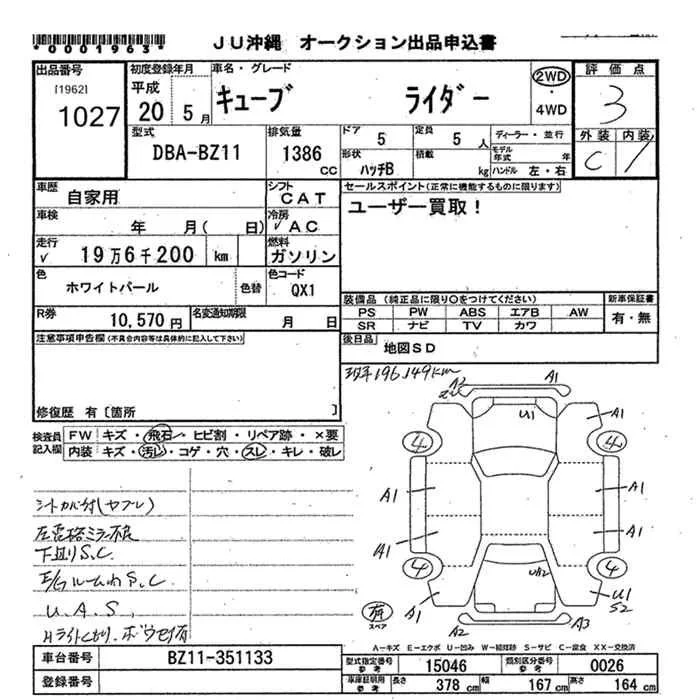 *0001963*
JU沖縄 オークション出品申込書
出品番号
[1962]
1027
初度登録年月
平成
20 5 月
車名・グレード
キューブ ライダー
2WD
・
4WD
評価点
3
外装 内装
C
型式
DBA-BZ11
排気量
1386
CC
ドア
5
定員
5 人
形状
ハッチB
積載
kg
ディーラー・並行
モデル年式 年
ハンドル 左・右
車歴
自家用
シフト
CAT
車検
年 月( 日)
冷房
✓ AC
走行
✓ 19万6千200 km
燃料
ガソリン
色
ホワイトパール
色替
色コード
QX1
R券
10,570 円
名変通知期限
月 日
セールスポイント(正常に機能するものに限ります)
ユーザー買取!
装備品 (純正品に限り○をつけてください)
PS PW ABS エアB AW
SR ナビ TV カワ
新車保証書
有・無
後日品
地図SD
注意事項申告欄(不具合内容等は具体的に記入して下さい)
修復歴 有〔箇所 〕
現车196,149km
検査員
記入欄
FW キズ・飛石・ヒビ割・リペア跡・×要
内装 キズ・汚れ・コゲ・穴・スレ・キレ・破レ
シートカバー付(ヤブレ)
下廻りS.C.
E/gルーム内S.C
U.A.S,
A2
A1
U1
A1
4
4
A1
A1
A1
A1
4
4
U2
A1
U1
S2
A2
A3
有
スペア
A-キズ E-エクボ U-凹み W-補修跡 S-サビ C-腐食 XX-交換済
車台番号
BZ11-351133
登録番号
型式指定番号
参考
15046
類別区分番号
参考
0026
車庫証明用
参考
長さ
378 cm
幅
167 cm
高さ
164 cm